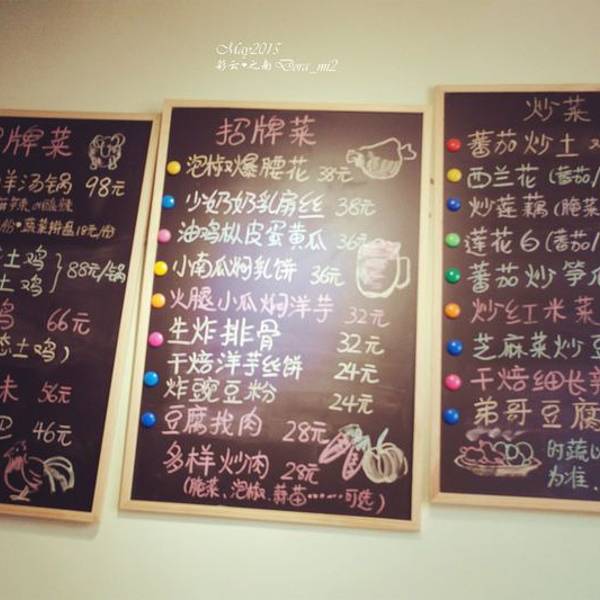 May2015
彩云♥之南 Dora_mi2
招牌菜
洋汤锅 98元
份•蔬菜拼盘18元/份
土鸡
土鸡 } 88元/锅
鸡 66元
葱土鸡)
味 56元
46元
招牌菜
泡椒爆腰花 38元
少奶奶乳房丝 38元
油鸡枞皮蛋黄瓜 36元
小南瓜焖乳饼 36元
火腿小瓜焖洋芋 32元
生炸排骨 32元
干焙洋芋丝饼 24元
炸豌豆粉 24元
豆腐找肉 28元
多样炒肉 28元
(腌菜、泡椒、蒜苗……可选)
炒菜
蕃茄炒土
西兰花(蕃茄/
炒莲藕(腌菜
莲花白(蕃茄/
蕃茄炒笋
炒红米菜
芝麻菜炒豆
干焙细长
弟哥豆腐
时蔬以
为准